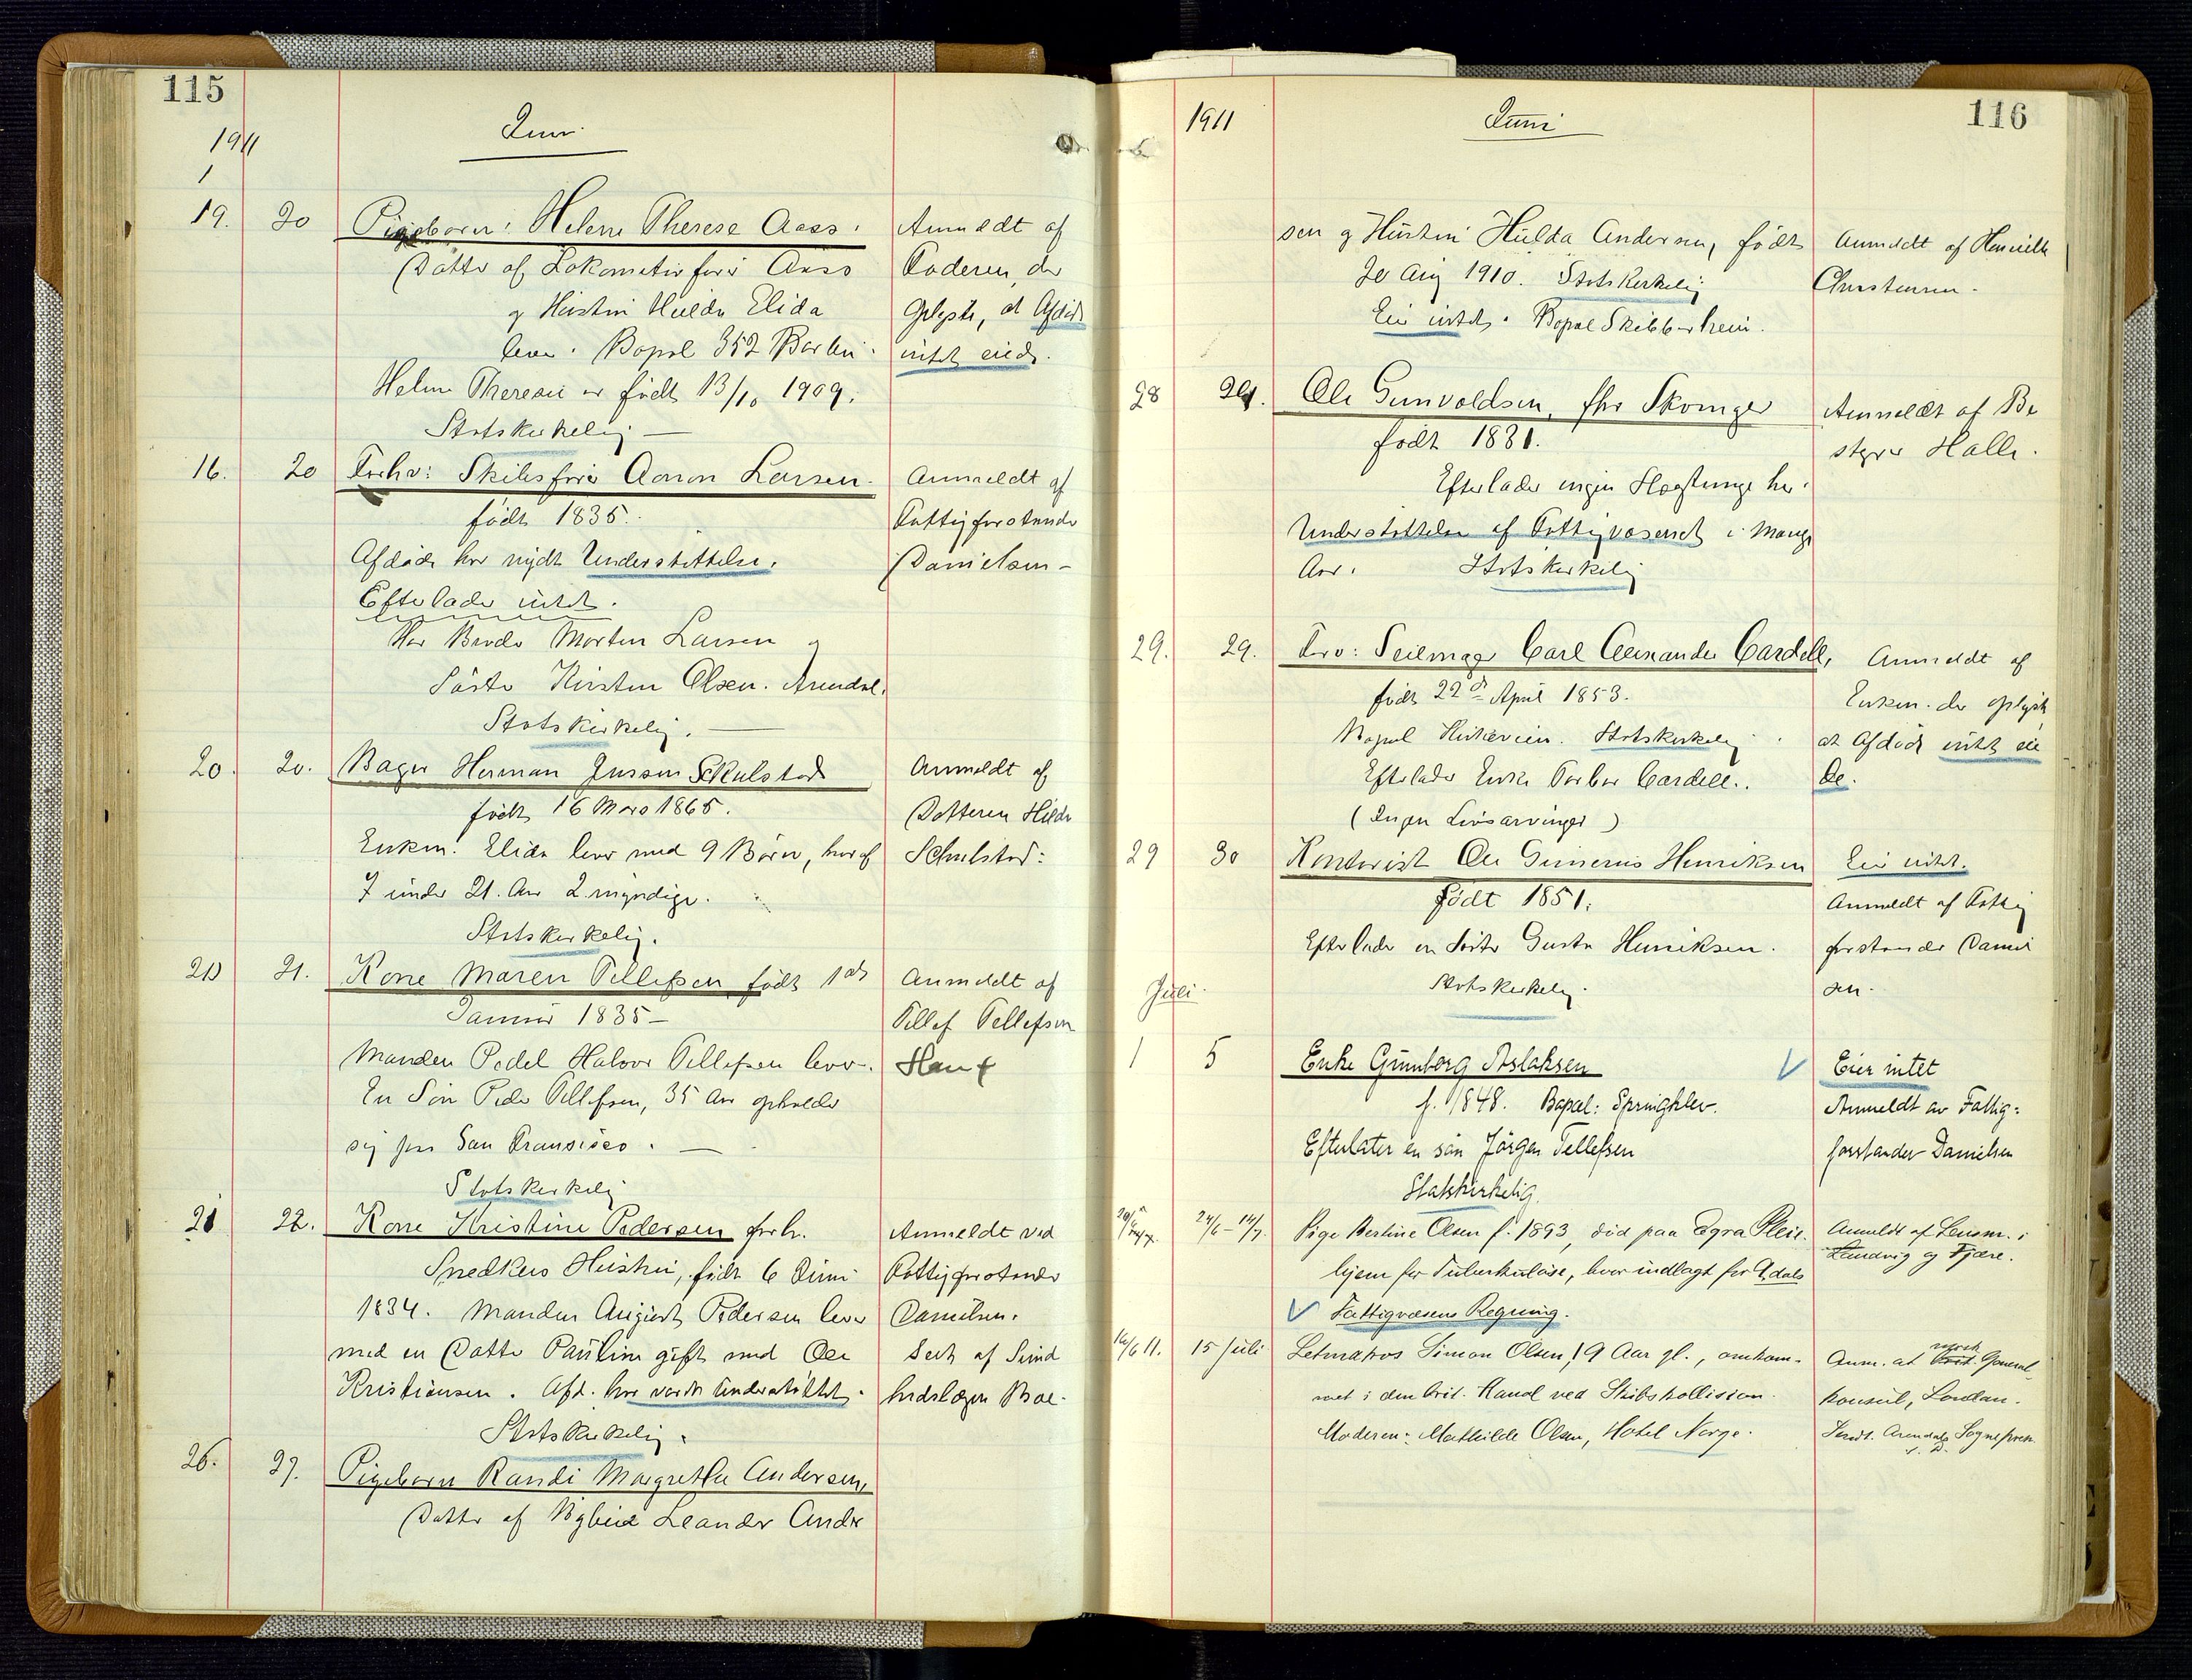 115
1911
Juni
1
19. 20 Pigebarn: Helene Therese Aass. Anmeldt af
Datter af Lokomotivfører Aass Faderen, der
og Hustru Hulda Elida oplyste, at Afdøde
lever. Bopæl 352 Barbu. intet eiede.
Helene Therese er født 13/10 1909.
Statskirkelig —
16. 20 Forhv: Skibsfører Aanon Larsen. Anmeldt af
født 1835. Fattigforstander
Afdøde har nydt Understøttelse. Danielsen —
Efterlader intet.
Har Broder Morten Larsen og
Søster Kirsten Olsen. Arendal.
Statskirkelig. —
20. 20. Bager Herman Jensen Schulstad Anmeldt af
født 16 Mars 1865. Datteren Hilda
Enken: Elida lever med 9 Børn, hvoraf Schulstad:
7 under 21. Aar 2 myndige.
Statskirkelig.
20 21. Kone Maren Tellefsen født 1ste Anmeldt af
Januar 1835 — Tellef Tellefsen
Manden Pedel Halvor Tellefsen lever.
En Søn Peder Tellefsen, 35 Aar opholder
sig paa San Fransisco. —
Statskirkelig
21 22. Kone Kristine Pedersen forh. Anmeldt ved
Snedkers Hustru, født 6 Juni Fattigforstander
1834. Manden August Pedersen lever Danielsen.
med en Datter Pauline gift med Ole Sedt af Sund
Kristiansen. Afd. har været understøttet. hedslægen Boe.
Statskirkelig.
26. 27. Pigebarn Randi Margrethe Andersen,
Datter af Leander Ander
1911
Juni
116
sen og Hustru Hulda Andersen, født Anmeldt af Henriette
20 Aug 1910. Statskirkelig Christensen.
Eier intet. Bopæl Skibberheien.
28 29. Ole Gunvoldsen, fhv Skomager Anmeldt af Be
født 1831. styrer Halle.
Efterlader ingen
Understøttelse af Fattigvæsenet i mange
Aar. Statskirkelig
29. 29. Forv: Seilmager Carl Alexander Cardell, Anmeldt af
født 22de April 1853. Enken. der oplyste
Bopæl Statskirkelig at Afdøde intet eie
Efterlader Enke Barbar Cardell. de.
(Ingen Livsarvinger)
29 30 Kontorist Ole Gunerius Henriksen Eier intet.
født 1851. Anmeldt af Fattig
Efterlader en Søster Gusta Henriksen. forstander Daniel
Statskirkelig. sen.
Juli
1 5 Enke Gunborg Aslaksen Eier intet
f. 1848. Bopæl: Springklev. Anmeldt av Fattig-
Efterlater en søn Jørgen Tellefsen forstander Danielsen
Statskirkelig.
24/6 – 14/7. Pige Bertine Olsen f. 1893, død paa Egra Pleie- Anmeldt af Lensm. i
hjem for Tuberkuløse, hvor indlagt for Landvig og Fjære.
Fattigvæsens Regning.
16/6 11. 15 Juli Letmatros Simon Olsen, 19 Aar gl., omkom- Anm. at norsk General
met i den brit. Kanal ved Skibskollision. konsul, London.
Moderen: Mathilde Olsen, Hotel Norge. Sendt. Arendals Sognepræst
s. D.